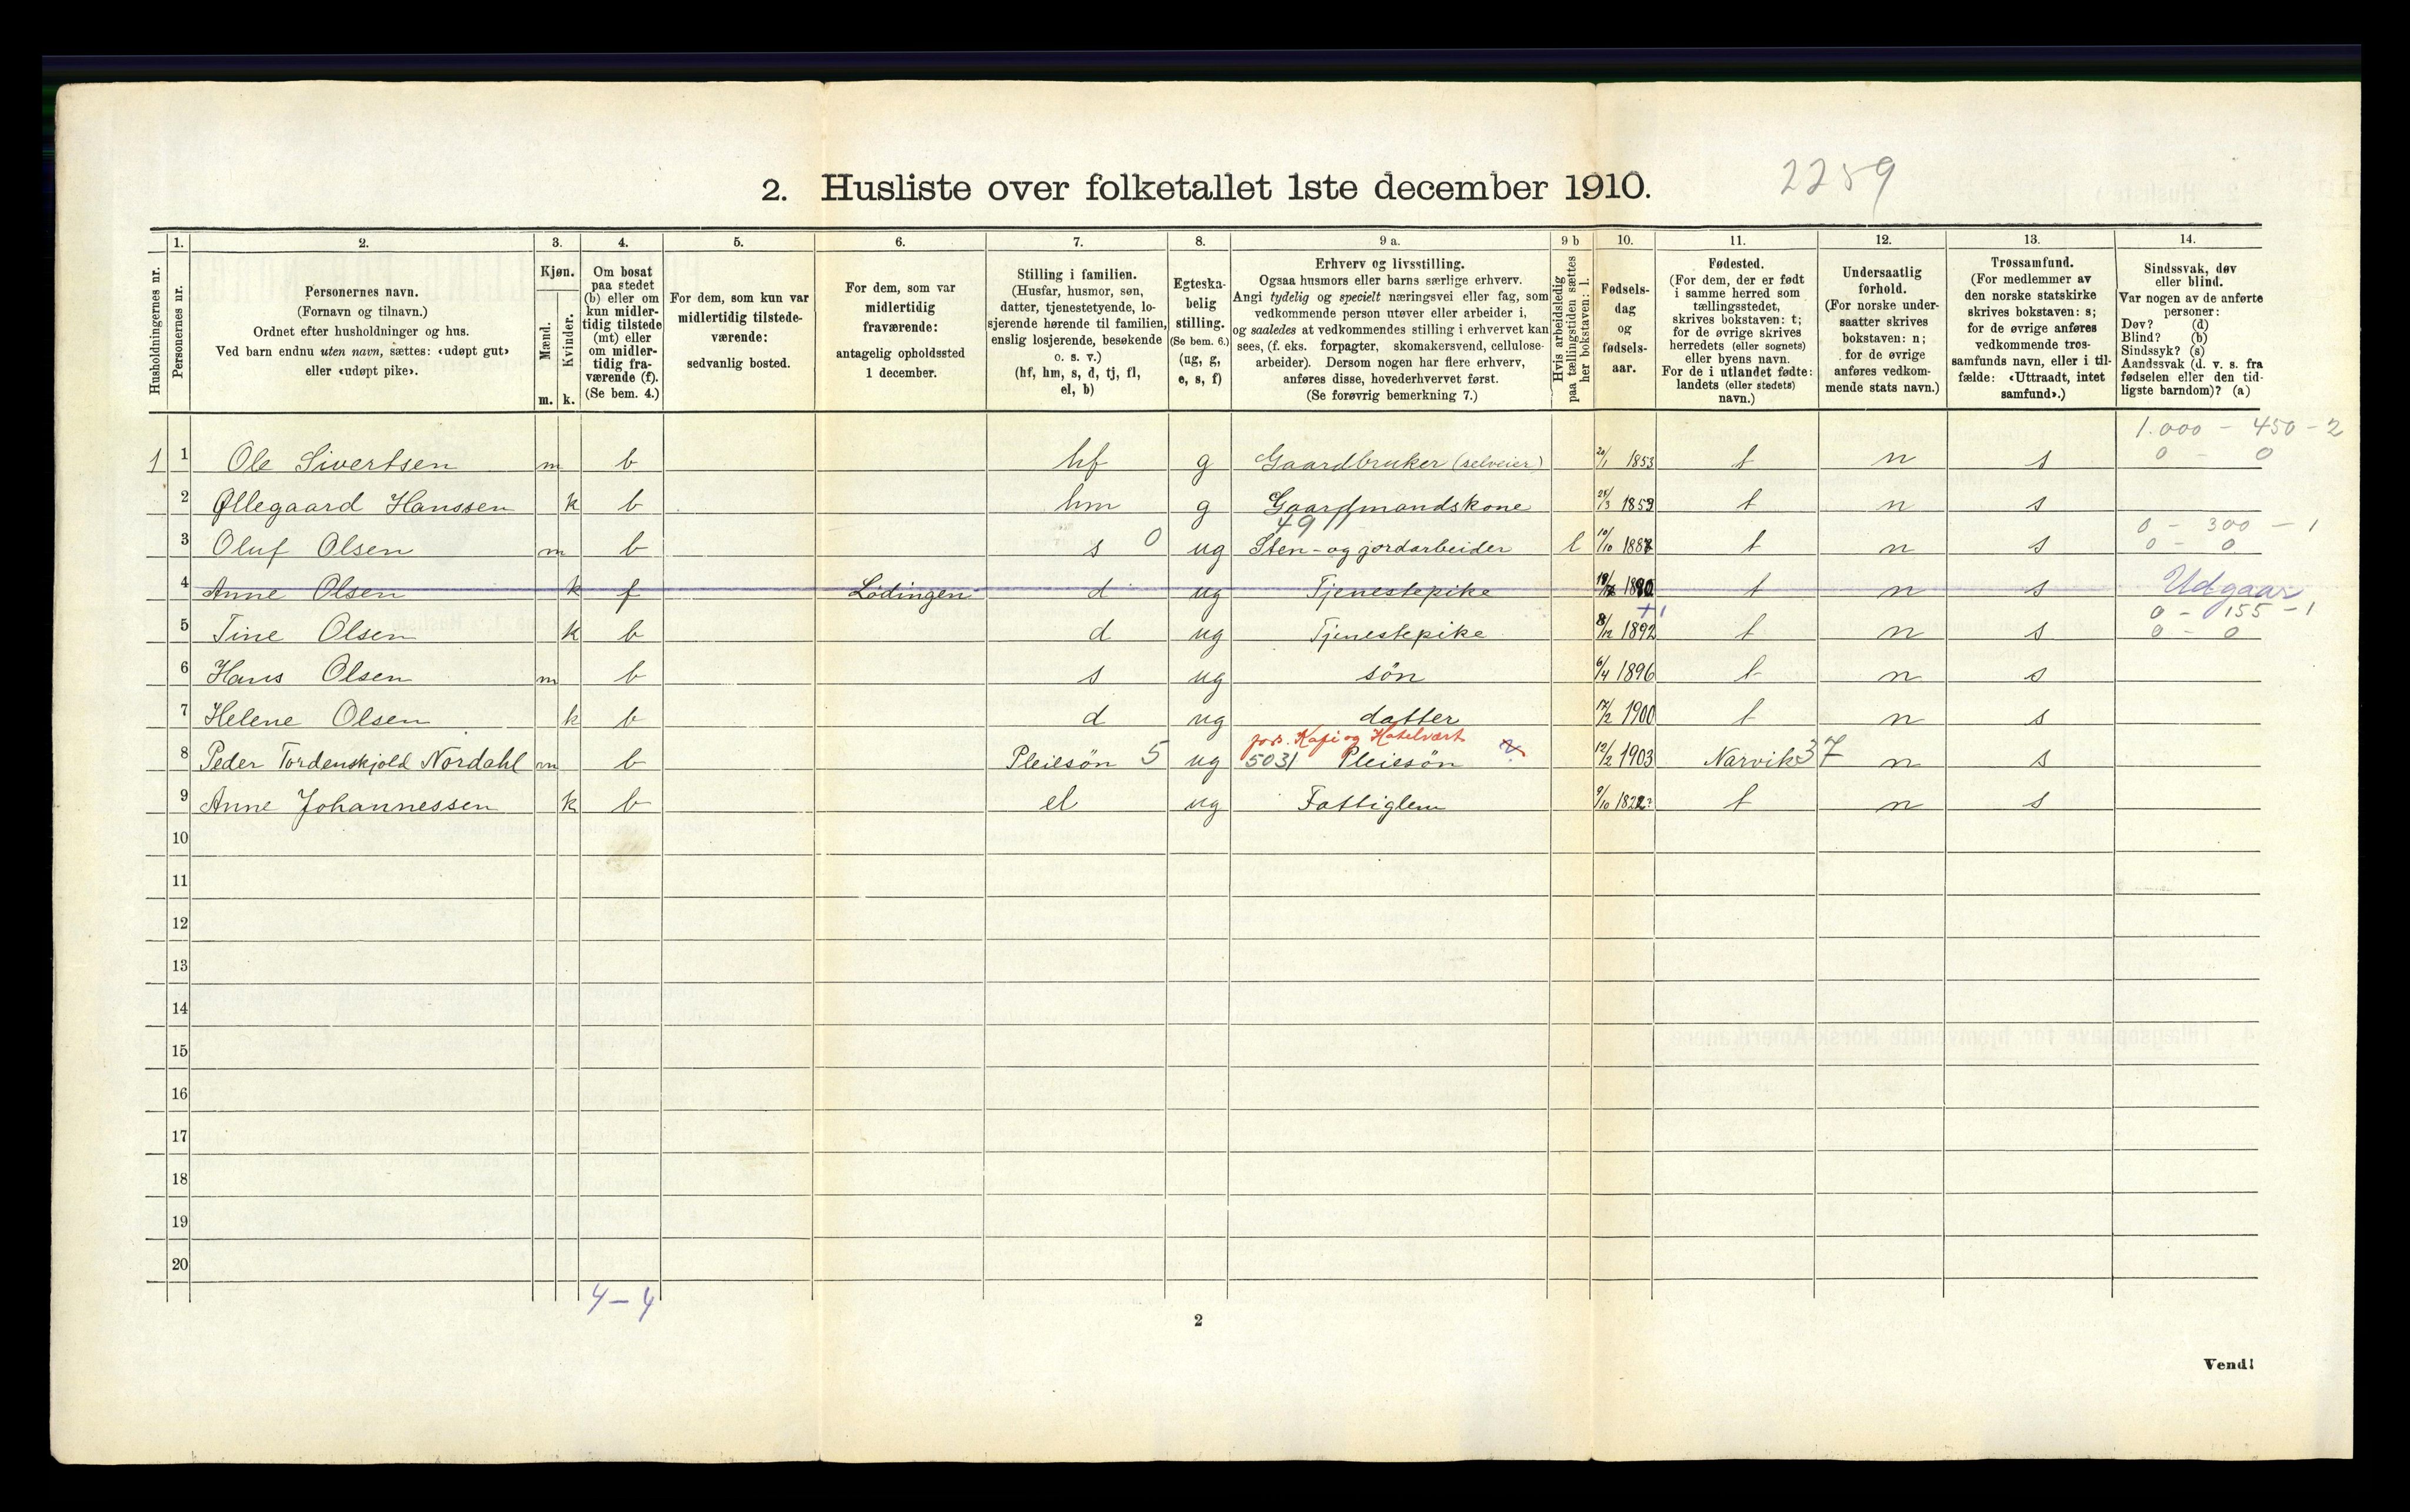 2. Husliste over folketallet 1ste december 1910.
2259
Husholdningernes nr.
1.
Personernes nr.
2.
Personernes navn.
(Fornavn og tilnavn.)
Ordnet efter husholdninger og hus.
Ved barn endnu uten navn, sættes: «udøpt gut»
eller «udøpt pike».
3.
Kjøn.
Mænd.
Kvinder.
m. k.
4.
Om bosat
paa stedet
(b) eller om
kun midler-
tidig tilstede
(mt) eller
om midler-
tidig fra-
værende (f).
(Se bem. 4.)
5.
For dem, som kun var
midlertidig tilstede-
værende:
sedvanlig bosted.
6.
For dem, som var
midlertidig
fraværende:
antagelig opholdssted
1 december.
7.
Stilling i familien.
(Husfar, husmor, søn,
datter, tjenestetyende, lo-
sjerende hørende til familien,
enslig losjerende, besøkende
o. s. v.)
(hf, hm, s, d, tj, fl,
el, b)
8.
Egteska-
belig
stilling.
(Se bem. 6.)
(ug, g,
e, s, f)
9 a.
Erhverv og livsstilling.
Ogsaa husmors eller barns særlige erhverv.
Angi tydelig og specielt næringsvei eller fag, som
vedkommende person utøver eller arbeider i,
og saaledes at vedkommendes stilling i erhvervet kan
sees, (f. eks. forpagter, skomakersvend, cellulose-
arbeider). Dersom nogen har flere erhverv,
anføres disse, hovederhvervet først.
(Se forøvrig bemerkning 7.)
9 b
Hvis arbeidsledig
paa tællingstiden sættes
her bokstaven: l.
10.
Fødsels-
dag
og
fødsels-
aar.
11.
Fødested.
(For dem, der er født
i samme herred som
tællingsstedet,
skrives bokstaven: t;
for de øvrige skrives
herredets (eller sognets)
eller byens navn.
For de i utlandet fødte:
landets (eller stedets)
navn.)
12.
Undersaatlig
forhold.
(For norske under-
saatter skrives
bokstaven: n;
for de øvrige
anføres vedkom-
mende stats navn.)
13.
Trossamfund.
(For medlemmer av
den norske statskirke
skrives bokstaven: s;
for de øvrige anføres
vedkommende tros-
samfunds navn, eller i til-
fælde: «Uttraadt, intet
samfund».)
14.
Sindssvak, døv
eller blind.
Var nogen av de anførte
personer:
Døv? (d)
Blind? (b)
Sindssyk? (s)
Aandssvak (d. v. s. fra
fødselen eller den tid-
ligste barndom)? (a)
1.000 - 450 - 2
0 - 0
1 1 Ole Sivertsen m b hf g Gaardbruker (selveier) 20/1 1853 t n s
2 Øllegaard Hanssen k b hm g Gaardmandskone 1859 t n s
49
0 - 300 - 1
0 - 0
3 Oluf Olsen m b s 0 ug Sten- og jordarbeider l 10/10 1887 t n s
4 Anne Olsen k f Lødingen d ug Tjenestepike 1890 t n s Udgaar
0 - 155 - 1
0 - 0
5 Tine Olsen k b d ug Tjenestepike 8/12 1892 t n s
6 Hans Olsen m b s ug søn 6/4 1896 t n s
7 Helene Olsen k b d ug datter 17/2 1900 t n s
Kafe og Hotelvært
8 Peder Tordenskjold Nordahl m b Pleiesøn 5 ug 5031 Pleiesøn 12/2 1903 Narvik 37 n s
9 Anne Johannessen k b el ug Fattiglem 9/10 1822? t n s
10
11
12
13
14
15
16
17
18
19
20
4 - 4
2
Vend!